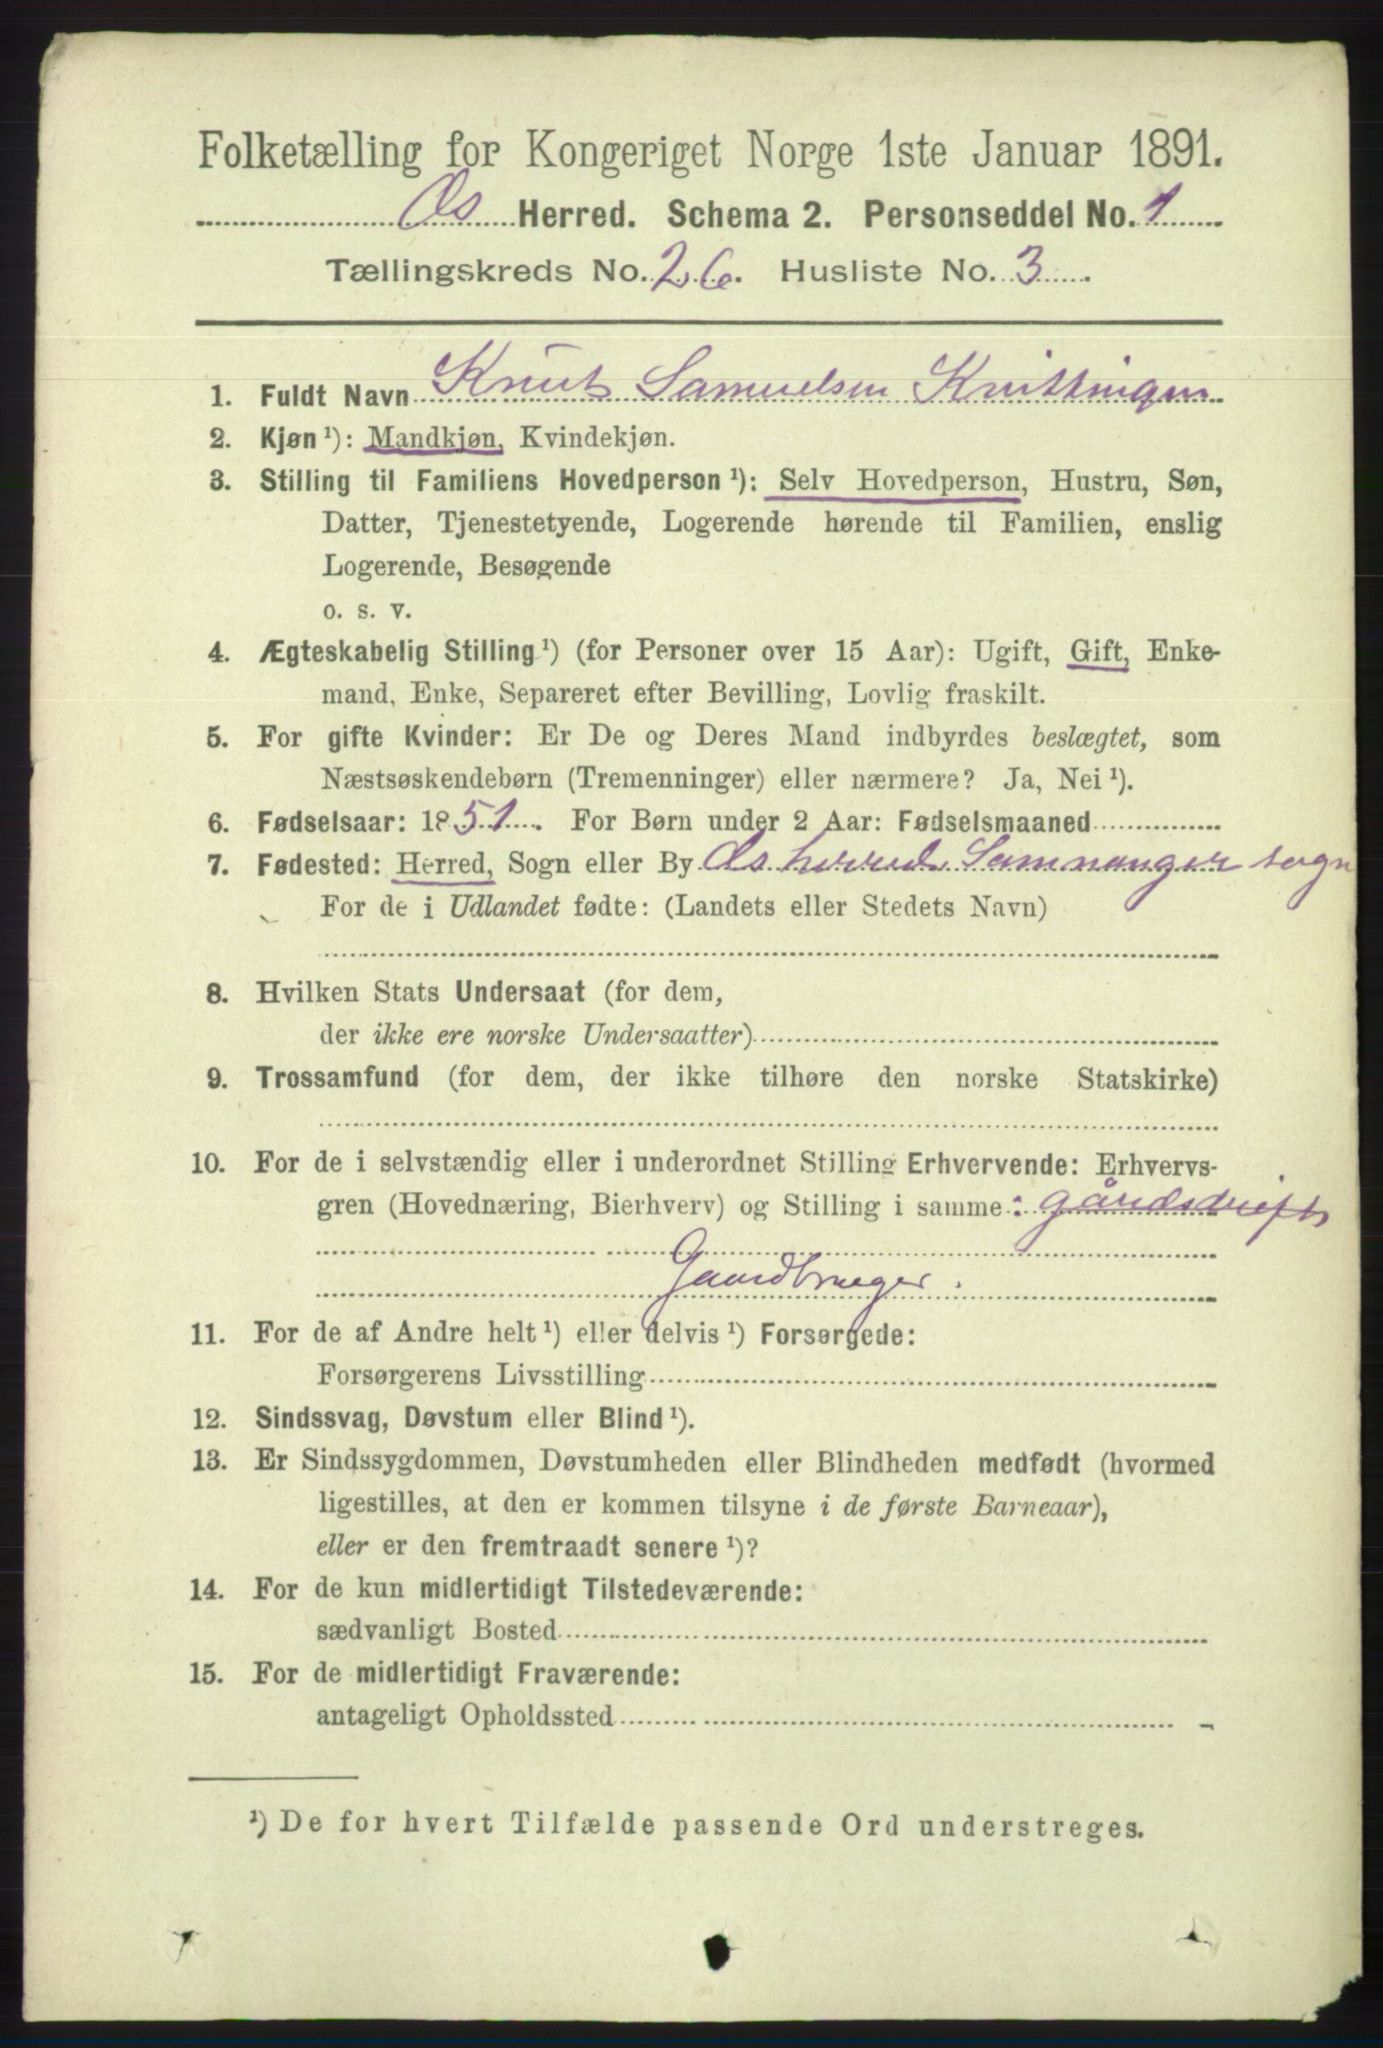 Folketælling for Kongeriget Norge 1ste Januar 1891.
Os Herred. Schema 2. Personseddel No. 1
Tællingskreds No. 26. Husliste No. 3.
1. Fuldt Navn Knut Samuelsen Knittingen
2. Kjøn ¹): Mandkjøn, Kvindekjøn.
3. Stilling til Familiens Hovedperson ¹): Selv Hovedperson, Hustru, Søn,
Datter, Tjenestetyende, Logerende hørende til Familien, enslig
Logerende, Besøgende
o. s. v.
4. Ægteskabelig Stilling ¹) (for Personer over 15 Aar): Ugift, Gift, Enke-
mand, Enke, Separeret efter Bevilling, Lovlig fraskilt.
5. For gifte Kvinder: Er De og Deres Mand indbyrdes beslægtet, som
Næstsøskendebørn (Tremenninger) eller nærmere? Ja, Nei ¹).
6. Fødselsaar: 1851. For Børn under 2 Aar: Fødselsmaaned
7. Fødested: Herred, Sogn eller By Os herred Samnanger sogn
For de i Udlandet fødte: (Landets eller Stedets Navn)
8. Hvilken Stats Undersaat (for dem,
der ikke ere norske Undersaatter)
9. Trossamfund (for dem, der ikke tilhøre den norske Statskirke)
10. For de i selvstændig eller i underordnet Stilling Erhvervende: Erhvervs-
gren (Hovednæring, Bierhverv) og Stilling i samme: gårdsdrift
Gaardbruger.
11. For de af Andre helt ¹) eller delvis ¹) Forsørgede:
Forsørgerens Livsstilling
12. Sindssvag, Døvstum eller Blind ¹).
13. Er Sindssygdommen, Døvstumheden eller Blindheden medfødt (hvormed
ligestilles, at den er kommen tilsyne i de første Barneaar),
eller er den fremtraadt senere ¹)?
14. For de kun midlertidigt Tilstedeværende:
sædvanligt Bosted
15. For de midlertidigt Fraværende:
antageligt Opholdssted
¹) De for hvert Tilfælde passende Ord understreges.